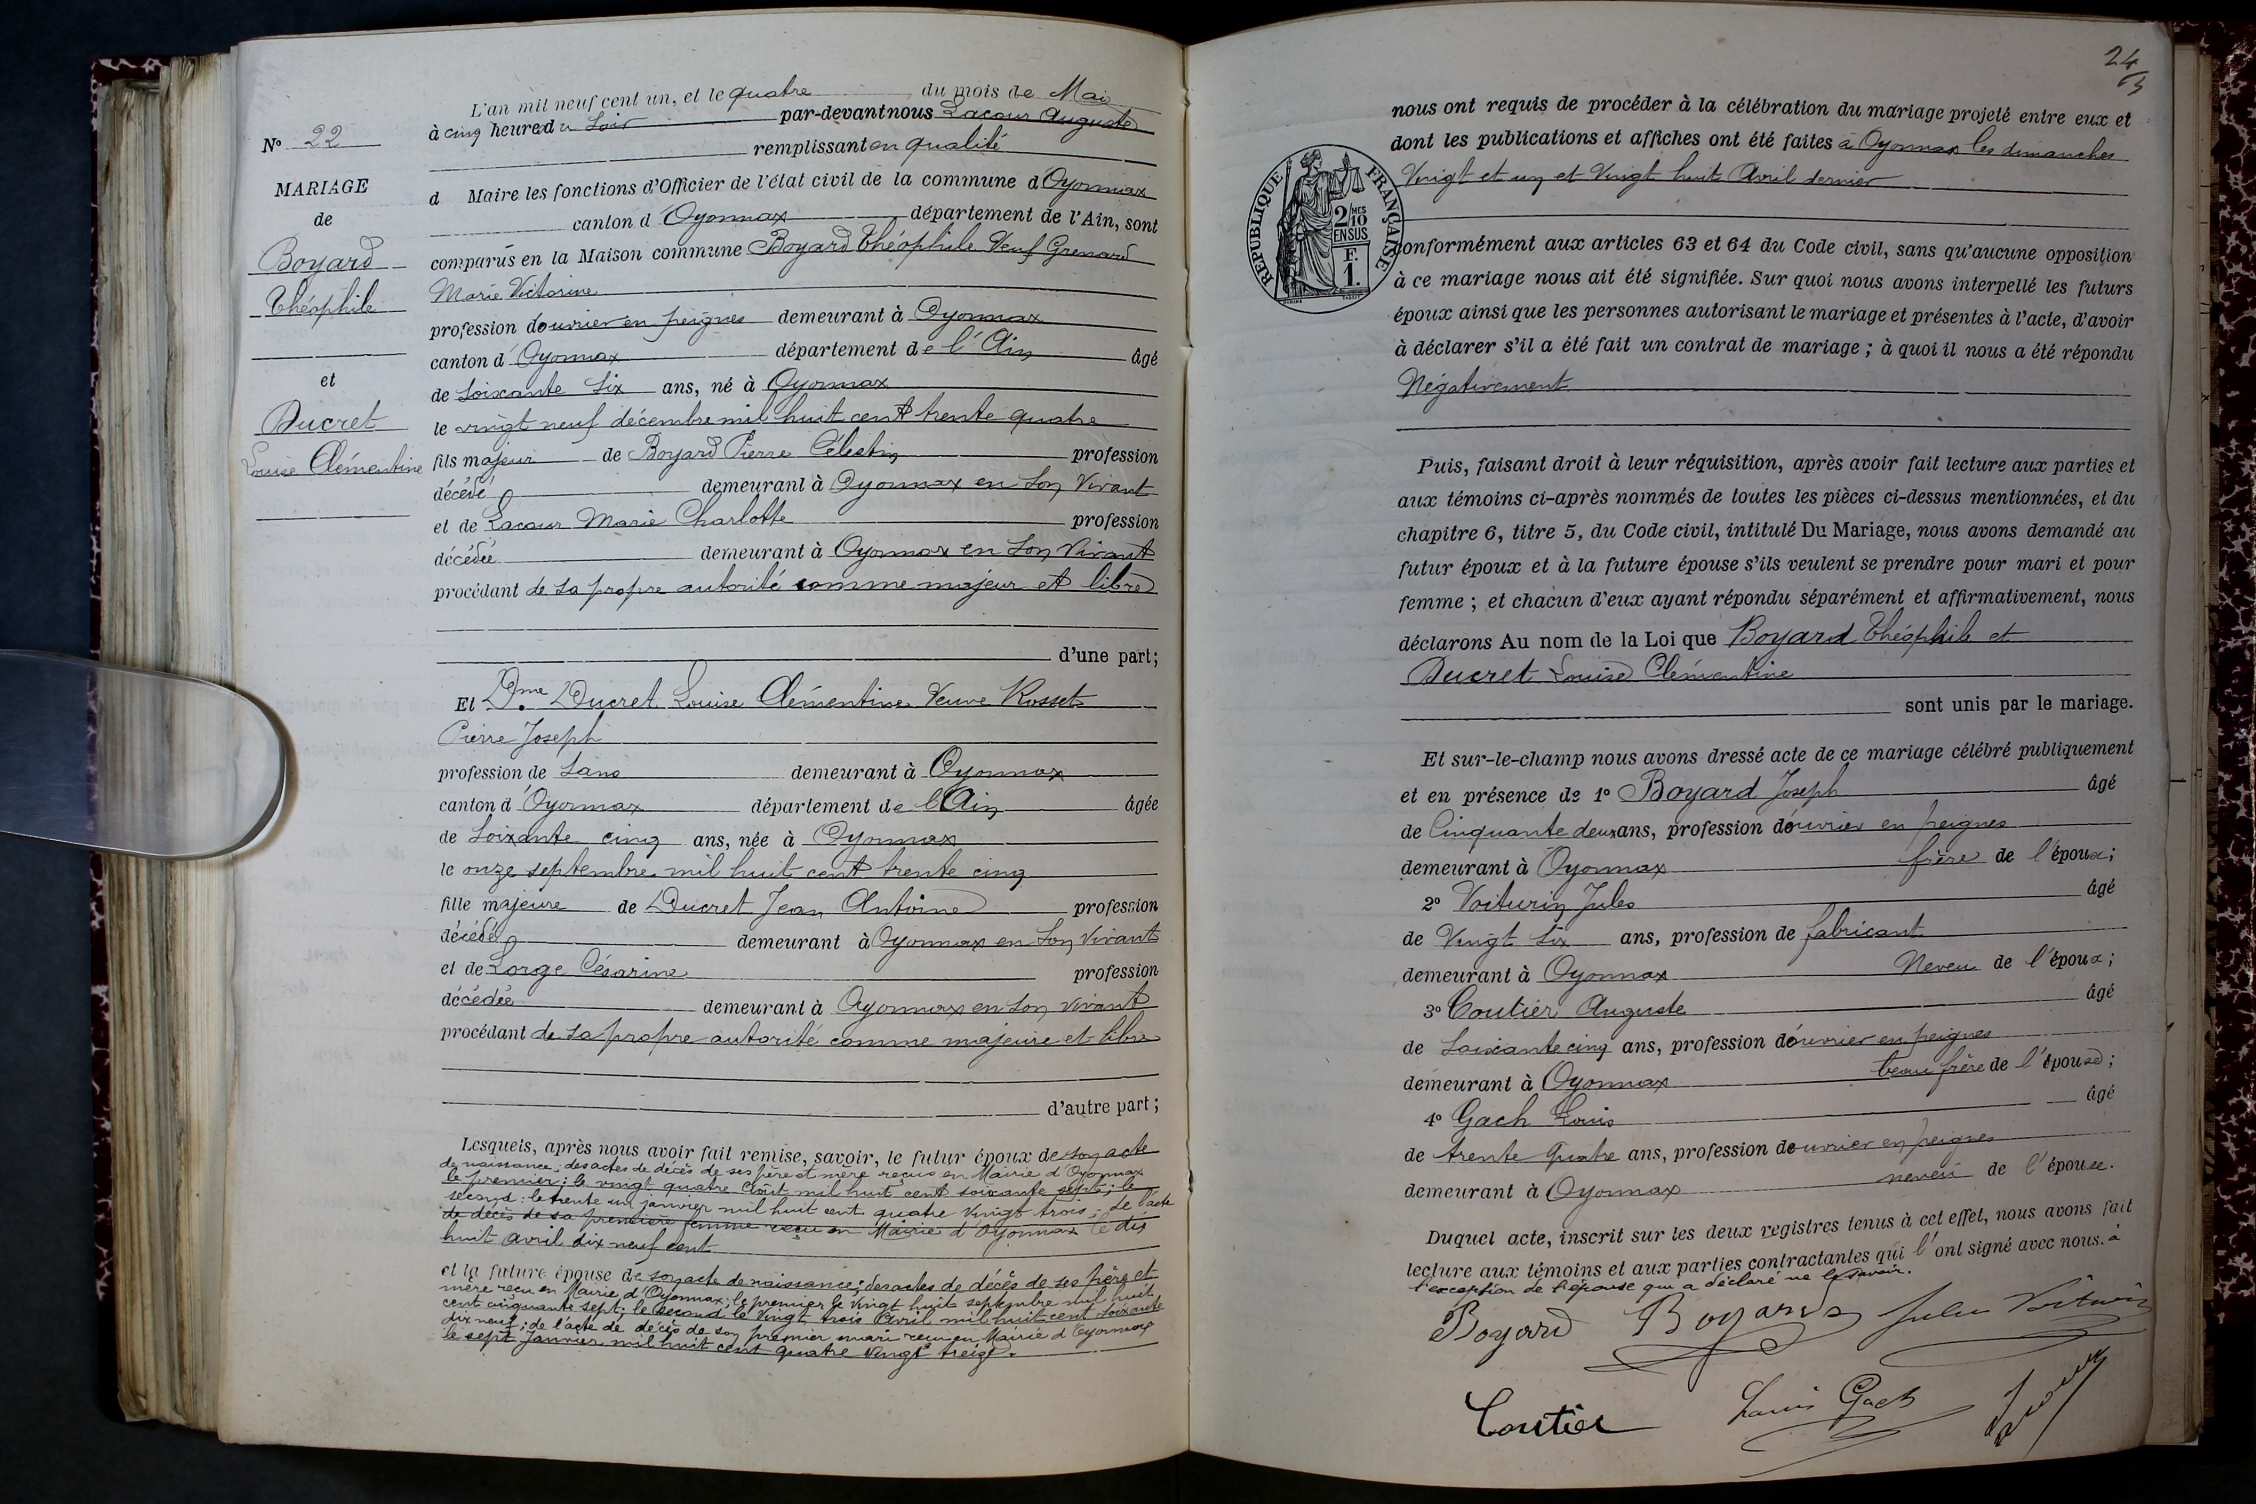 L'an mil neuf cent un, et le quatre du mois de Mai
à cinq heures du Soir par-devant nous Lacour Auguste
remplissant en qualité
d Maire les fonctions d'Officier de l'état civil de la commune d'Oyonnax
canton d'Oyonnax département de l'Ain, sont
comparus en la Maison commune Boyard Théophile Veuf Grenard
Marie Victorine
profession d'ouvrier en peignes demeurant à Oyonnax
canton d'Oyonnax département de l'Ain âgé
de Soixante Six ans, né à Oyonnax
le vingt neuf décembre mil huit cent trente quatre
fils majeur de Boyard Pierre Célestin profession
décédé demeurant à Oyonnax en Son Vivant
et de Lacour Marie Charlotte profession
décédée demeurant à Oyonnax en Son Vivant
procédant de sa propre autorité comme majeur et libre
d'une part;
Et Dme Ducret Louise Clémentine Veuve Rosset
Pierre Joseph
profession de Sans demeurant à Oyonnax
canton d'Oyonnax département de l'Ain âgée
de Soixante cinq ans, née à Oyonnax
le onze septembre mil huit cent trente cinq
fille majeure de Ducret Jean Antoine profession
décédé demeurant à Oyonnax en Son Vivant
et de Lorge Césarine profession
décédée demeurant à Oyonnax en Son vivant
procédant de sa propre autorité comme majeure et libre
d'autre part;
Lesquels, après nous avoir fait remise, savoir, le futur époux de son acte
de naissance; des actes de décès de ses père et mère reçus en Mairie d'Oyonnax
le premier; le vingt quatre Août mil huit cent soixante sept; le
second: le trente un janvier mil huit cent quatre vingt trois; de l'acte
de décès de sa première femme reçu en Mairie d'Oyonnax le dix
huit avril dix neuf cent
et la future épouse de son acte de naissance; des actes de décès de ses père et
mère reçu en Mairie d'Oyonnax; le premier le vingt huit septembre mil huit
cent cinquante sept; le second le Vingt trois Avril mil huit cent soixante
dix neuf; de l'acte de décès de son premier mari reçu en Mairie d'Oyonnax
le sept Janvier mil huit cent quatre vingt treize.
No 22
MARIAGE
de
Boyard
Théophile
et
Ducret
Louise Clémentine
24
RÉPUBLIQUE FRANÇAISE
2/10 MES
EN SUS
F.
1.
nous ont requis de procéder à la célébration du mariage projeté entre eux et
dont les publications et affiches ont été faites à Oyonnax les dimanches
Vingt et un et Vingt huit Avril dernier
conformément aux articles 63 et 64 du Code civil, sans qu'aucune opposition
à ce mariage nous ait été signifiée. Sur quoi nous avons interpellé les futurs
époux ainsi que les personnes autorisant le mariage et présentes à l'acte, d'avoir
à déclarer s'il a été fait un contrat de mariage; à quoi il nous a été répondu
Négativement
Puis, faisant droit à leur réquisition, après avoir fait lecture aux parties et
aux témoins ci-après nommés de toutes les pièces ci-dessus mentionnées, et du
chapitre 6, titre 5, du Code civil, intitulé Du Mariage, nous avons demandé au
futur époux et à la future épouse s'ils veulent se prendre pour mari et pour
femme; et chacun d'eux ayant répondu séparément et affirmativement, nous
déclarons Au nom de la Loi que Boyard Théophile et
Ducret Louise Clémentine
sont unis par le mariage.
Et sur-le-champ nous avons dressé acte de ce mariage célébré publiquement
et en présence de 1o Boyard Joseph âgé
de Cinquante deux ans, profession d'ouvrier en peignes
demeurant à Oyonnax frère de l'époux;
2o Voiturin Jules âgé
de Vingt Six ans, profession de fabricant
demeurant à Oyonnax Neveu de l'époux;
3o Coutier Auguste âgé
de Soixante cinq ans, profession d'ouvrier en peignes
demeurant à Oyonnax beau frère de l'épouse;
4o Gach Louis âgé
de trente quatre ans, profession d'ouvrier en peignes
demeurant à Oyonnax neveu de l'épouse.
Duquel acte, inscrit sur les deux registres tenus à cet effet, nous avons fait
lecture aux témoins et aux parties contractantes qui l'ont signé avec nous. à
l'exception de l'épouse qui a déclaré ne le savoir.
Boyard Boyard Jules Voiturin
Coutier Louis Gach